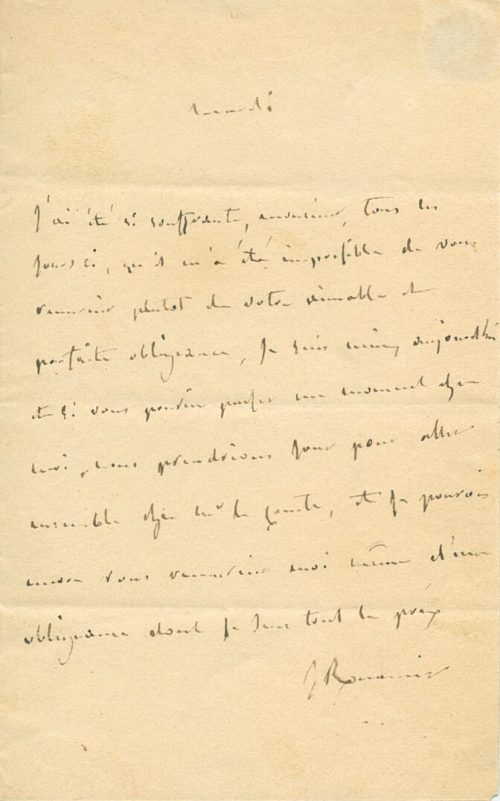 mardi
J'ai été si souffrante, monsieur, tous les
jours ci, qu'il m'a été impossible de vous
remercier plutot de votre aimable et
parfaite obligeance, Je suis mieux aujourdhui
et si vous pouviez passer un moment chez
moi, nous prendrions jour pour aller
ensemble chez Mr le comte, et je pourrois
encore vous remercier moi même d'une
obligeance dont je sens tout le prix
J Récamier